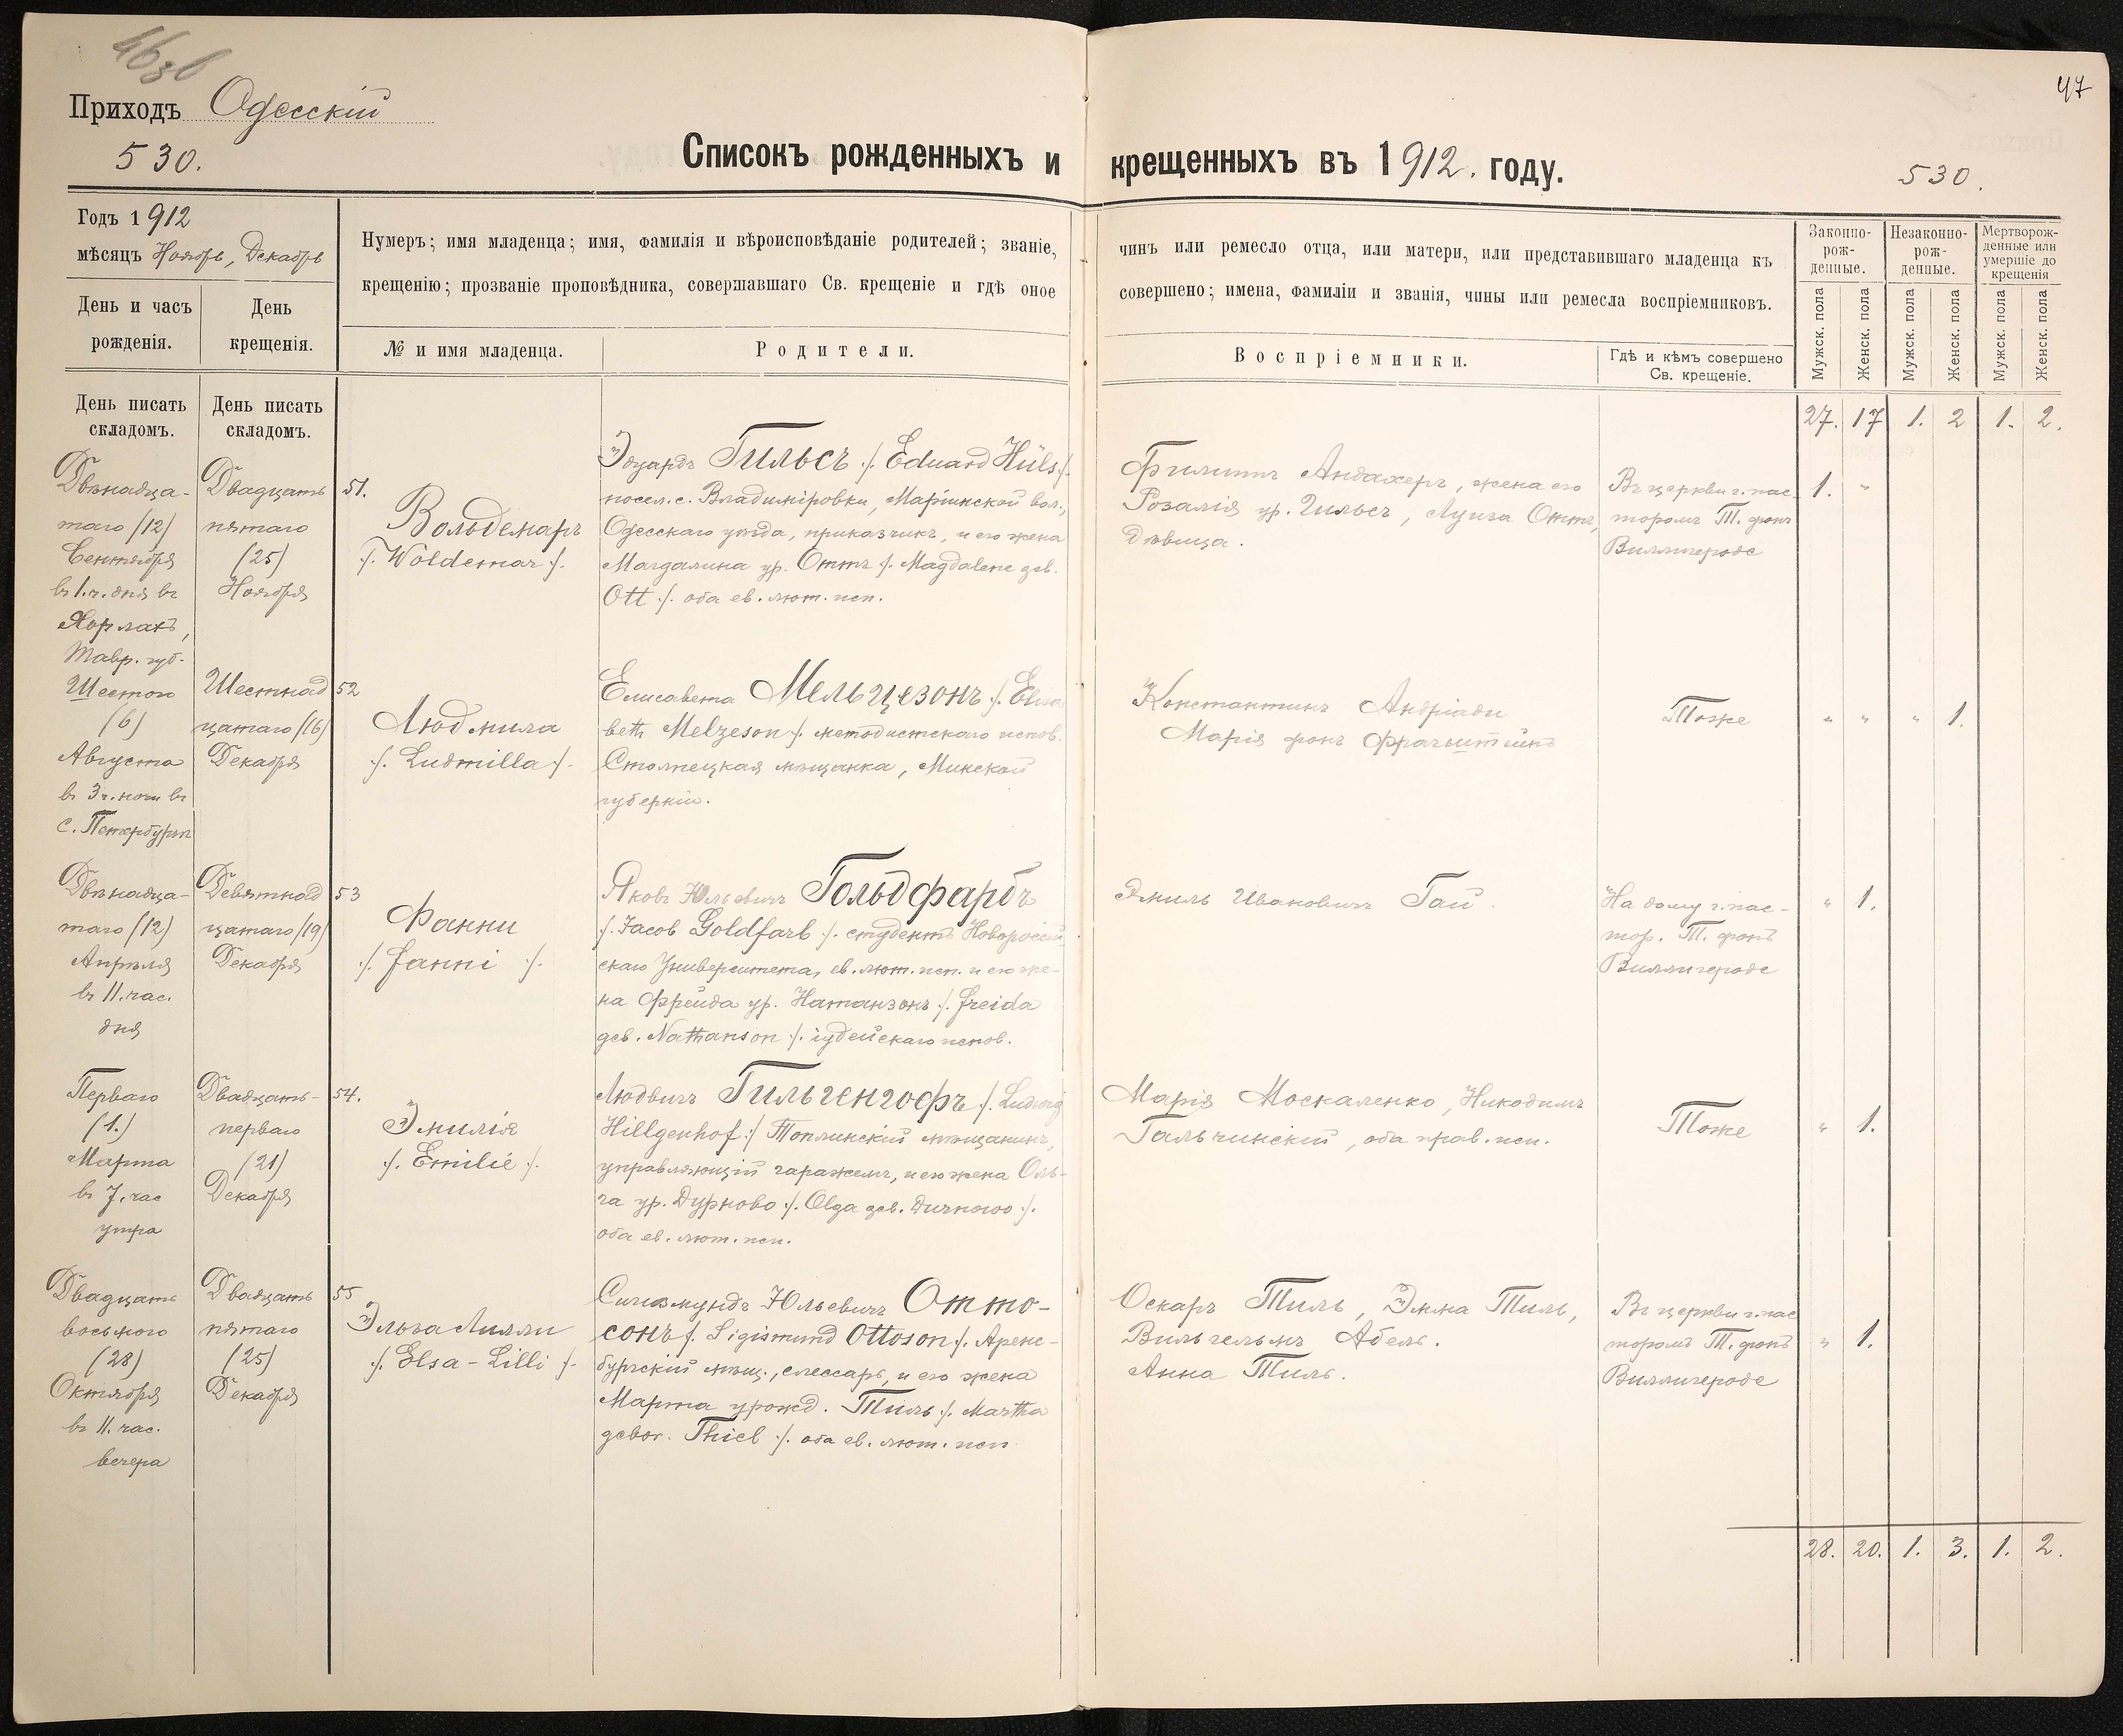 47
Приходъ Одесскій
530.
Списокъ рожденныхъ и крещенныхъ въ 1912. году.
530.
Годъ 1912
мѣсяцъ Ноябрь, Декабрь
День и часъ
рожденія.
День
крещенія.
Нумеръ; имя младенца; имя, фамилія и вѣроисповѣданіе родителей; званіе,
крещенію; прозваніе проповѣдника, совершавшаго Св. крещеніе и гдѣ оное
№ и имя младенца.
Родители.
чинъ или ремесло отца, или матери, или представившаго младенца къ
совершено; имена, фамиліи и званія, чины или ремесла воспріемниковъ.
Воспріемники.
Гдѣ и кѣмъ совершено
Св. крещеніе.
Законно-
рож-
денные.
Незаконно-
рож-
денные.
Мертворож-
денные или
умершіе до
крещенія
Мужск. пола
Женск. пола
Мужск. пола
Женск. пола
Мужск. пола
Женск. пола
День писать
складомъ.
День писать
складомъ.
27. 17 1. 2 1. 2.
Двѣнадца-
таго /12/
Сентября
въ 1. ч. дня въ
Тавр. губ.
Двадцать
пятаго
(25)
Ноября
51.
Вольдемаръ
/. Woldemar /.
Эдуардъ Гильсъ /. Eduard Hüls /.
посел. с. Владиміровки, Маріинской вол.,
Одесскаго уѣзда, приказчикъ, и его жена
Магдалина ур. Оттъ /. Magdalene geb.
Ott /. оба ев. лют. исп.
Филиппъ Андахеръ, жена его
Розалія ур. Гильсъ, Луиза Оттъ,
дѣвица.
Въ церкви г. пас-
торомъ Т. фонъ
Виллигероде
1. "
Шестого
(6)
Августа
въ 3 ч. ночи въ
С. Петербургѣ
Шестнад
цатаго /16/
Декабря
52
Людмила
/. Ludmilla /.
Елисавета Мельцезонъ /. Elisa
beth Melzeson /. методистскаго испов.
Столпецкая мѣщанка, Минской
губерніи.
Константинъ Андріади
Марія фонъ
Тоже
" " " 1.
Двѣнадца-
таго /12/
Апрѣля
въ 11. час.
дня
Девятнад
цатаго /19/
Декабря
53
Фанни
/. Fanni /.
Яковъ Юльевичъ Гольдфарбъ
/. Jacob Goldfarb /. студентъ Новороссій-
скаго Университета, ев. лют. исп. и его же-
на Фрейда ур. Натанзонъ /. Freida
geb. Nathanson /. іудейскаго испов.
Эмиль Ивановичъ Гай.
На дому г. пас-
тор. Т. фонъ
Виллигероде
" 1.
Перваго
(1.)
Марта
въ 7. час
утра
Двадцать-
перваго
(21)
Декабря
54.
Эмилія
/. Emilie /.
Людвигъ Гильгенгофъ /. Ludwig
Hillgenhof /. мѣщанинъ,
управляющій гаражемъ, и его жена Оль-
га ур. Дурново /. Olga geb. Durnowo /.
оба ев. лют. исп.
Марія Москаленко, Никодимъ
Гальчинскій, оба прав. исп.
Тоже
" 1.
Двадцать
восьмого
(28)
Октября
въ 11. час.
вечера
Двадцать
пятаго
(25)
Декабря
55
Эльза Лилли
/. Elsa-Lilli /.
Сигизмундъ Юльевичъ Отто-
сонъ /. Sigismund Ottoson /. Аренс-
бургскій мѣщ., слесарь, и его жена
Марта урожд. Тиль /. Martha
gebor. Thiel /. оба ев. лют. исп
Оскаръ Тиль, Эмма Тиль,
Вильгельмъ Абель.
Анна Тиль.
Въ церкви г. пас
торомъ Т. фонъ
Виллигероде
" 1.
28. 20. 1. 3. 1. 2.